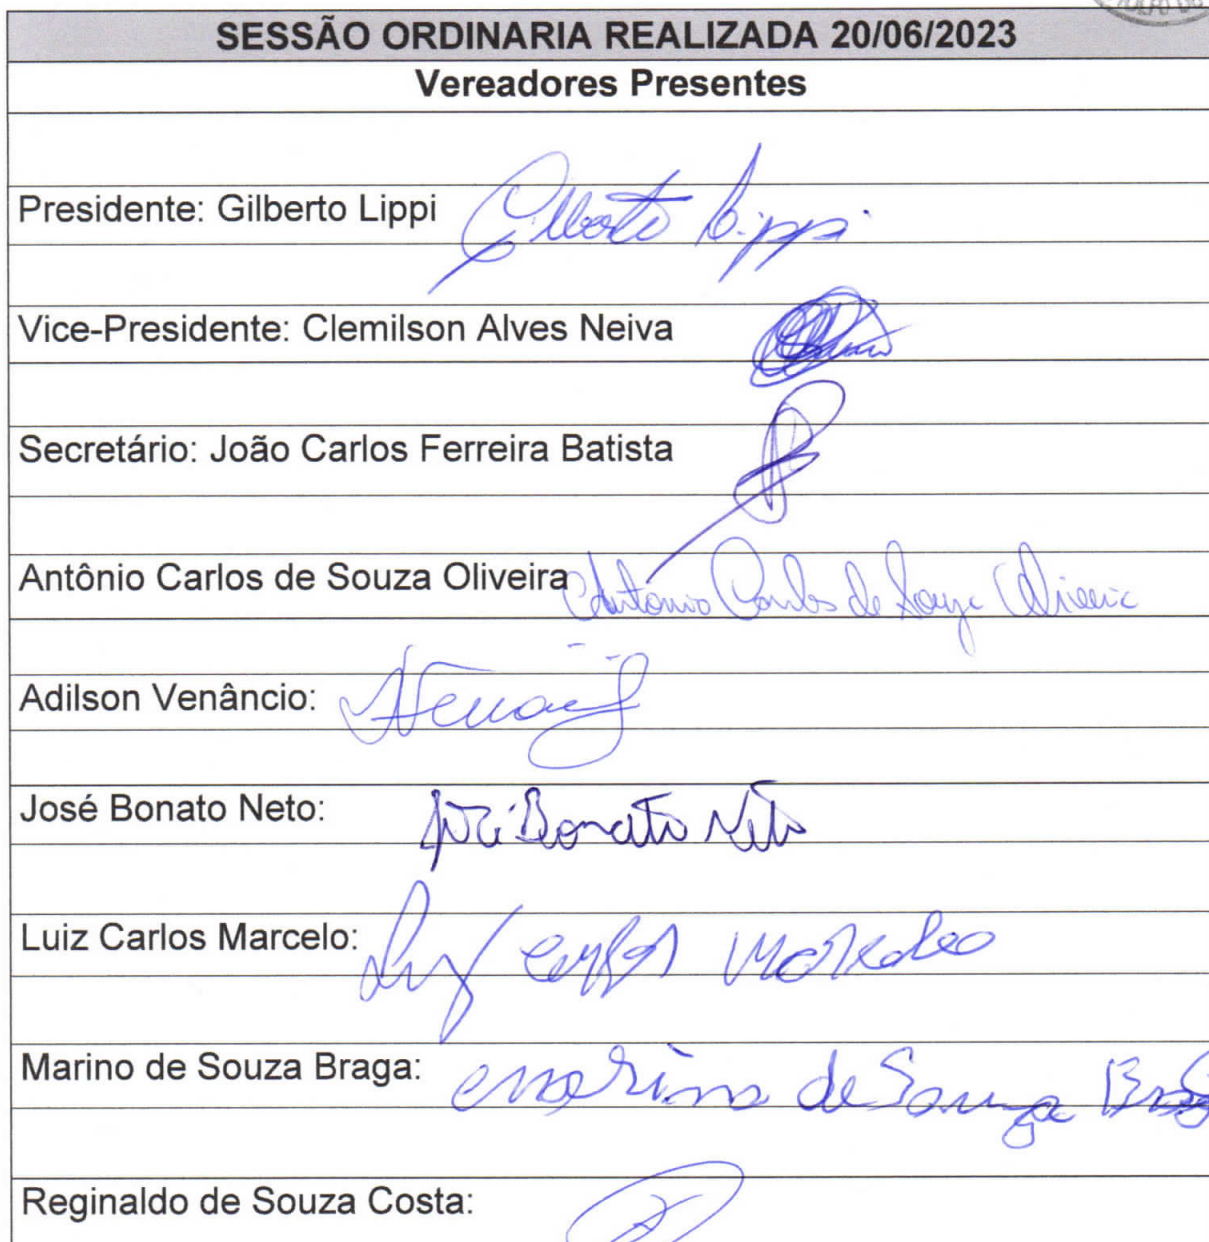 SESSÃO ORDINARIA REALIZADA 20/06/2023
Vereadores Presentes
Presidente: Gilberto Lippi Gilberto Lippi
Vice-Presidente: Clemilson Alves Neiva
Secretário: João Carlos Ferreira Batista
Antônio Carlos de Souza Oliveira Antonio Carlos de Souza Oliveira
Adilson Venâncio:
José Bonato Neto: José Bonato Neto
Luiz Carlos Marcelo: Luiz Carlos Marcelo
Marino de Souza Braga: Marino de Souza Braga
Reginaldo de Souza Costa: